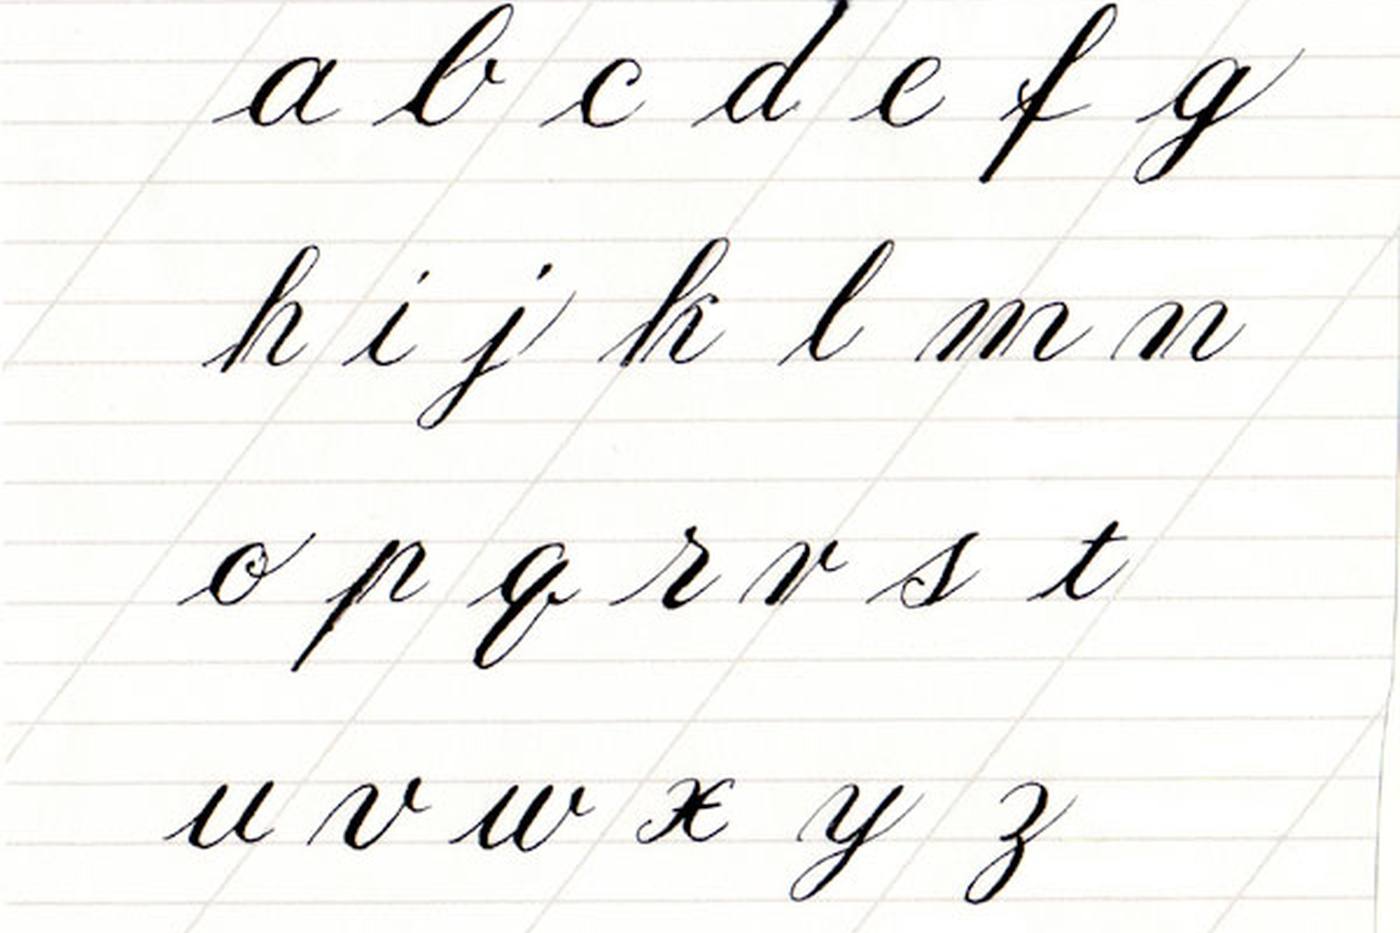 a b c d e f g
h i j k l m n
o p q r r s t
u v w x y z